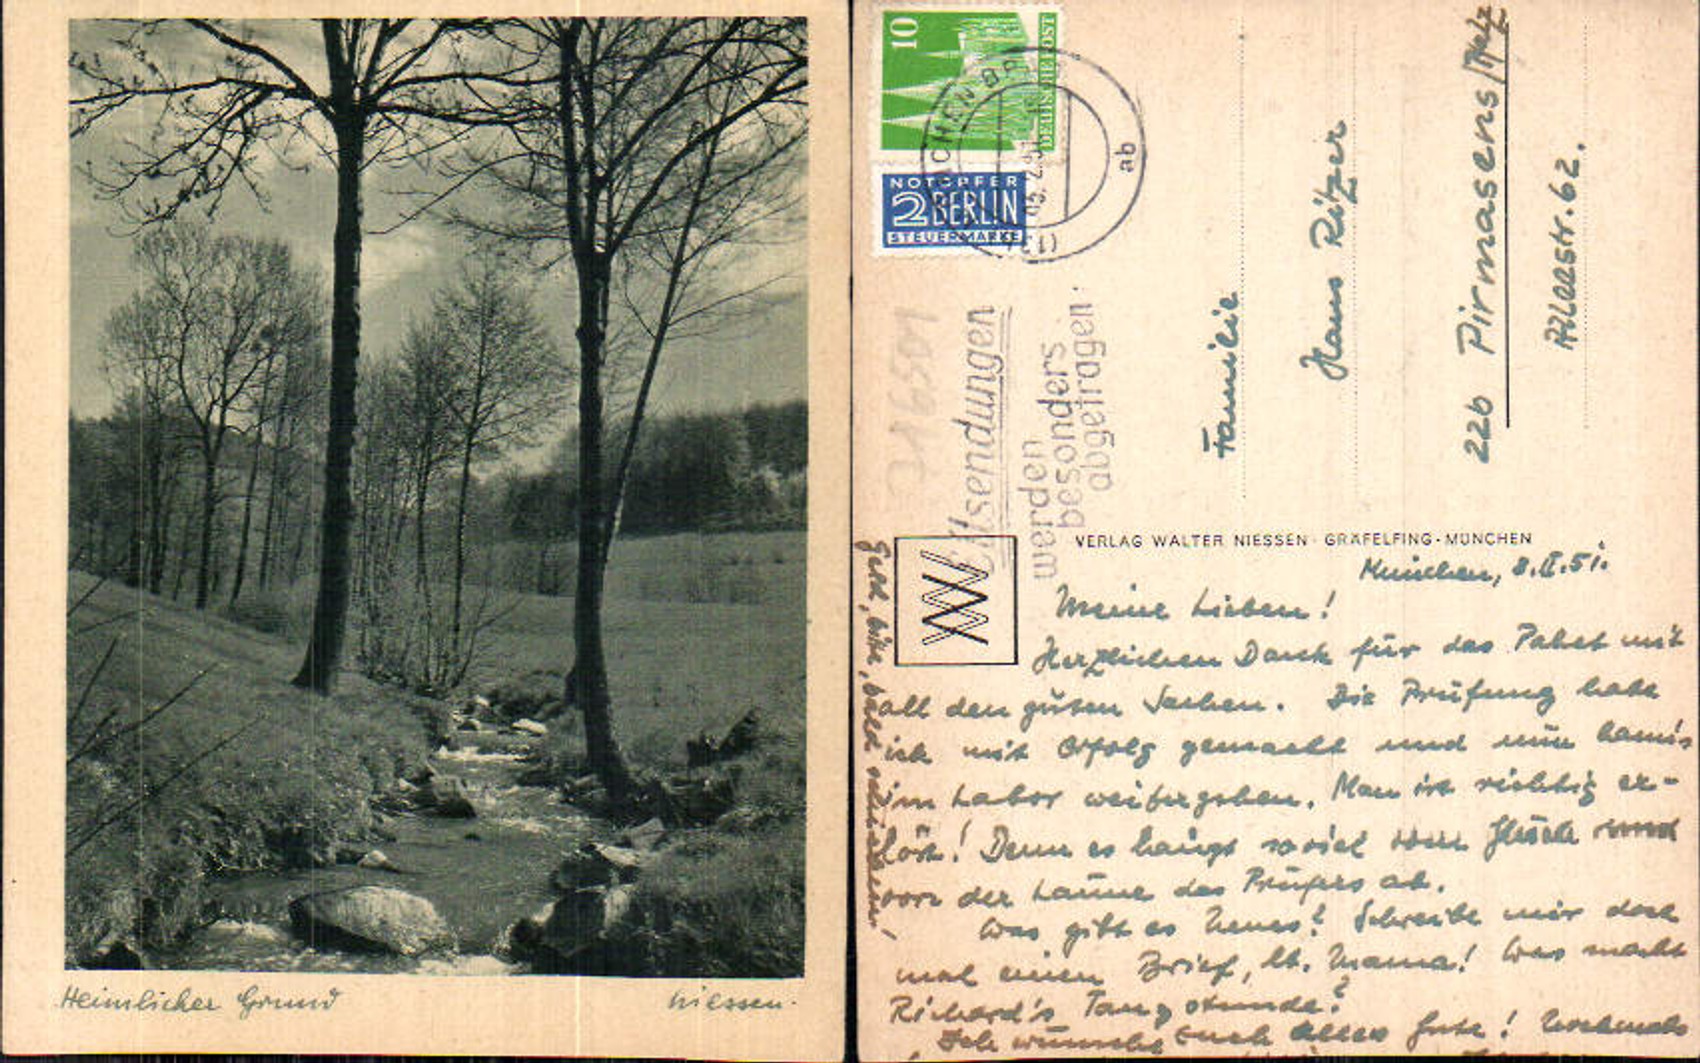 Heimlicher Grund
Niessen.
10
DEUTSCHE POST
NOTOPFER
2 BERLIN
STEUERMARKE
ab
716501
Eilsendungen
werden
besonders
abgetragen
Familie
Hans Ritzer
22b Pirmasens/Pfalz
Adlerstr. 62.
VERLAG WALTER NIESSEN · GRÄFELFING · MÜNCHEN
München, 8.II.51.
Meine Lieben!
Herzlichen Dank für das Paket mit
all den guten Sachen. Die Prüfung habe
ich mit Erfolg gemacht und nun kann's
im Labor weitergehen. Man ist richtig er-
löst! Denn es hängt soviel vom Glück und
von der Laune des Prüfers ab.
Was gibt es Neues? Schreibe mir doch
mal einen Brief, lb. Mama! Was macht
Richard's Tanzstunde?
Ich wünsche Euch alles Gute! Nochmals
Geld, bitte, bald schicken,